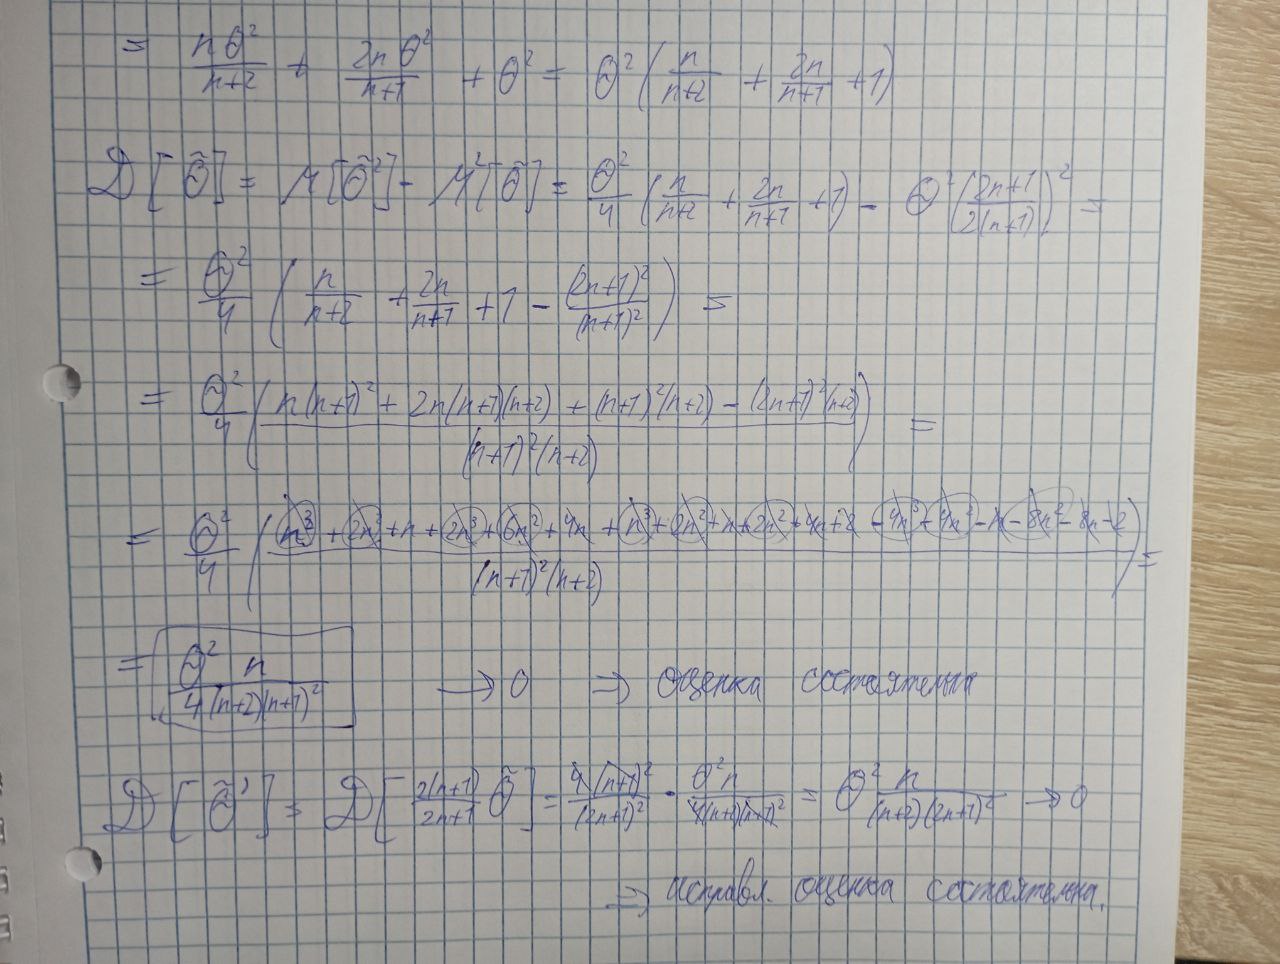 = nθ²/(n+2) + 2nθ²/(n+1) + θ² = θ²(n/(n+2) + 2n/(n+1) + 1)
D[θ̃] = M[θ̃²] - M²[θ̃] = θ²/4 (n/(n+2) + 2n/(n+1) + 1) - θ²((2n+1)/(2(n+1)))² =
= θ²/4 (n/(n+2) + 2n/(n+1) + 1 - (2n+1)²/(n+1)²) =
= θ²/4 ((n(n+1)² + 2n(n+1)(n+2) + (n+1)²(n+2) - (2n+1)²(n+2))/((n+1)²(n+2))) =
= θ²/4 ((n³ + 2n² + n + 2n³ + 6n² + 4n + n³ + 2n² + n + 2n² + 4n + 2 - 4n³ - 4n² - n - 8n² - 8n - 2)/((n+1)²(n+2))) =
= θ²n/(4(n+2)(n+1)²) → 0 ⇒ оценка состоятельна
D[θ̃'] = D[2(n+1)/(2n+1) θ̃] = 4(n+1)²/(2n+1)² · θ²n/(4(n+2)(n+1)²) = θ² n/((n+2)(2n+1)²) → 0
⇒ исправл. оценка состоятельна.